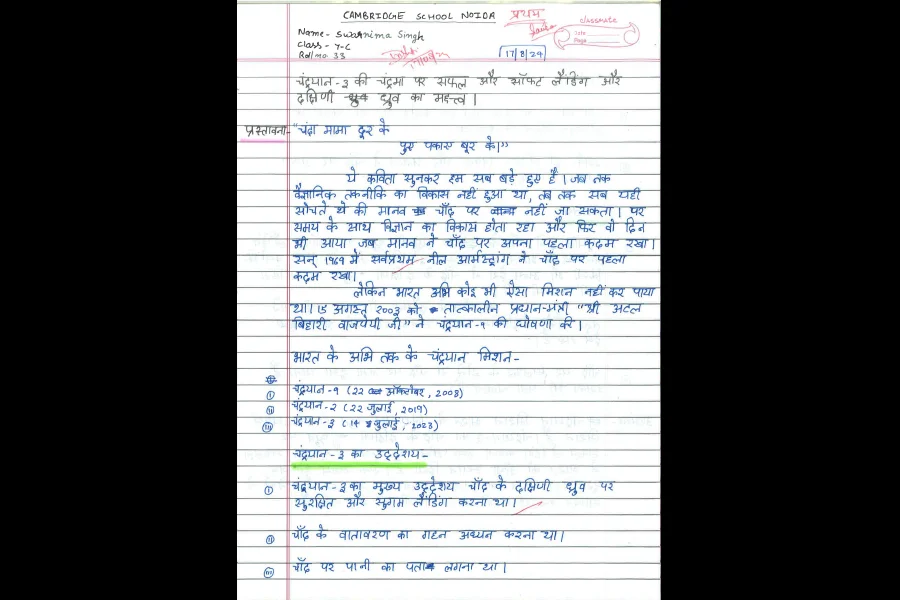 CAMBRIDGE SCHOOL NOIDA
प्रथम
classmate
Date
Page
Name- Swarnima Singh
Class - 7-C
Roll no. 33
17/8/24
चंद्रयान-३ की चंद्रमा पर सफल और सॉफ्ट लैंडिंग और
दक्षिणी ध्रुव का महत्त्व।
प्रस्तावना- "चंदा मामा दूर के
पुए पकाए बूर के।"
ये कविता सुनकर हम सब बड़े हुए हैं। जब तक
वैज्ञानिक तकनीकि का विकास नहीं हुआ था, तब तक सब यही
सोचते थे की मानव चाँद पर नहीं जा सकता। पर
समय के साथ विज्ञान का विकास होता रहा और फिर वो दिन
भी आया जब मानव ने चाँद पर अपना पहला कदम रखा।
सन् १९६९ में सर्वप्रथम नील आर्मस्ट्रांग ने चाँद पर पहला
कदम रखा।
लेकिन भारत अभि कोइ भी ऐसा मिशन नहीं कर पाया
था। 15 अगस्त २००३ को तात्कालीन प्रधान-मंत्री "श्री अटल
बिहारी वाजपेयी जी" ने चंद्रयान-१ की घोषणा की।
भारत के अभि तक के चंद्रयान मिशन-
(i) चंद्रयान-१ (22 ऑक्टोबर, 2008)
(ii) चंद्रयान-२ (22 जुलाई, 2019)
(iii) चंद्रयान-३ (14 जुलाई, 2023)
चंद्रयान-३ का उद्देशय-
(i) चंद्रयान-३ का मुख्य उद्देशय चाँद के दक्षिणी ध्रुव पर
सुरक्षित और सुगम लैंडिंग करना था।
(ii) चाँद के वातावरण का गहन अध्यन करना था।
(iii) चाँद पर पानी का पता लगना था।